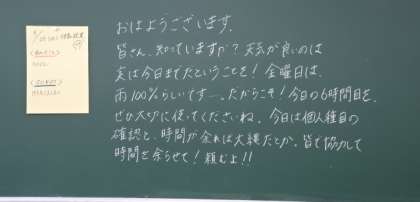 おはようございます。
皆さん、知っていますか？天気が良いのは
実は今日までだということを！金曜日は、
雨100%らしいですー。だからこそ！今日の6時間目を、
ぜひ大切に使ってくださいね。今日は個人種目の
確認と、時間が余れば大縄だとか。皆で協力して
時間を余らせて！頼むよ！！